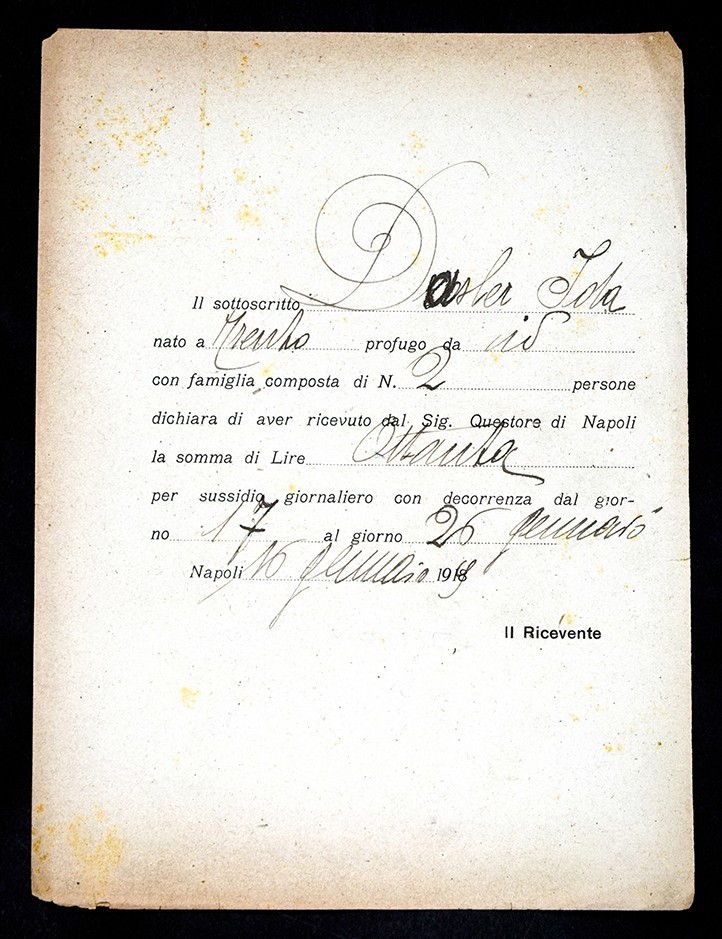 Il sottoscritto Dasler Ida
nato a Trento profugo da id
con famiglia composta di N. 2 persone
dichiara di aver ricevuto dal Sig. Questore di Napoli
la somma di Lire Ottanta
per sussidio giornaliero con decorrenza dal gior-
no 17 al giorno 26 gennaio
Napoli 16 gennaio 1919
Il Ricevente